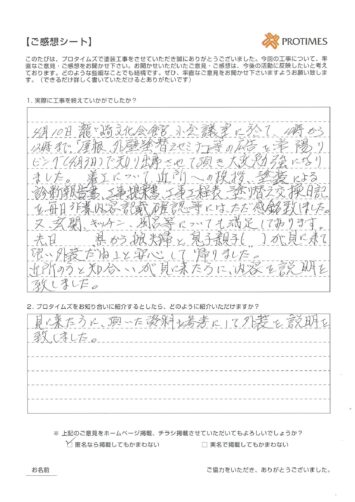 【ご感想シート】
PROTIMES
このたびは、プロタイムズで塗装工事をさせていただき誠にありがとうございました。今回の工事について、率
直なご意見・ご感想をお聞かせ下さい。お聞かせいただいたご意見・ご感想は、今後の活動に反映したいと考え
ております。どのような些細なことでも結構です。ぜひ、率直なご意見をお聞かせ下さいますようお願い致しま
す。（できるだけ詳しく書いていただけるとありがたいです）
1. 実際に工事を終えていかがでしたか?
5月10日 文化会館 小会議室に於て、10時から
12時まで「屋根、外壁塗替えセミナー」の広告を 陽リ
ビングで知り出席させて頂き大変勉強になり
ました。着工について近所への挨拶、塗装による
診断報告書、工事提案書、工事工程表、塗り替え交換日記
を毎日作業内容記載確認等にはただ感銘致しました。
又、玄関、キッチン、 等についても満足しております。
先日 県から娘夫婦と 見に来て
良い外装だねと安心して帰りました。
近所の方と知合いが見に来た方に、内容を説明を
致しました。
2. プロタイムズをお知り合いに紹介するとしたら、どのように紹介いただけますか?
見に来た方に、頂いた資料を参考にして外装を説明を
致しました。
※ 上記のご意見をホームページ掲載、チラシ掲載させていただいてもよろしいでしょうか？
匿名なら掲載してもかまわない 実名で掲載してもかまわない
お名前 ご協力をいただき、ありがとうございました。